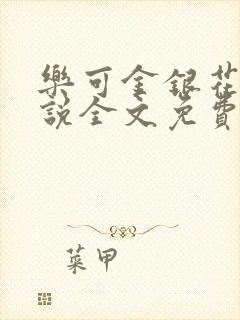 樂可金銀花
説全文免費
菜甲